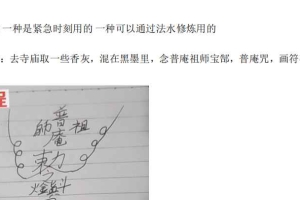 一种是紧急时刻用的 一种可以通过法水修炼用的
：去寺庙取一些香灰，混在黑墨里，念普庵祖师宝髻，普庵咒，画符
程
普
庵
祖